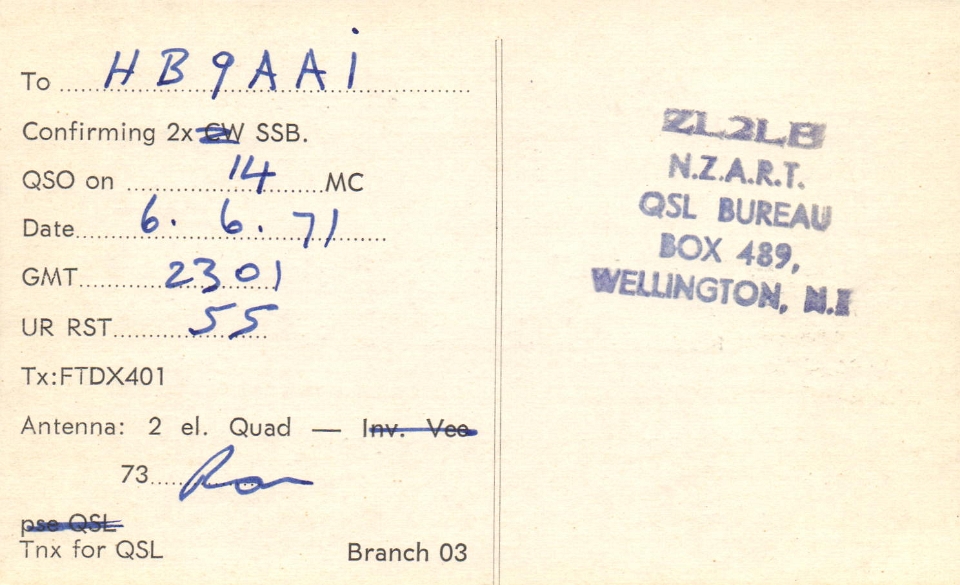 To HB9AAI
Confirming 2x CW SSB.
QSO on 14 MC
Date 6. 6. 71
GMT 2301
UR RST 55
Tx:FTDX401
Antenna: 2 el. Quad — Inv. Vee
73 Ron
pse QSL
Tnx for QSL
Branch 03
ZL2LB
N.Z.A.R.T.
QSL BUREAU
BOX 489,
WELLINGTON, N.Z